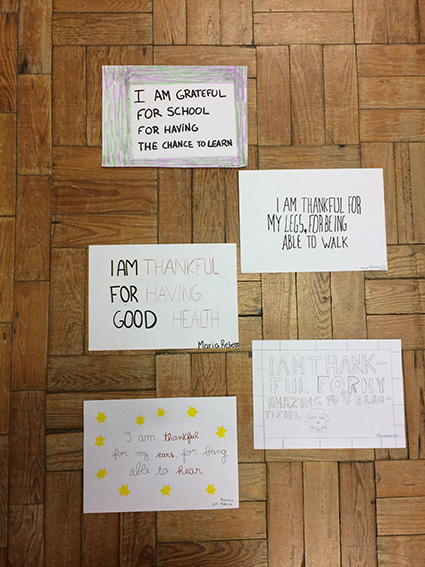 I AM GRATEFUL
FOR SCHOOL
FOR HAVING
THE CHANCE TO LEARN
I AM THANKFUL FOR
MY LEGS, FOR BEING
ABLE TO WALK
I AM THANKFUL
FOR HAVING
GOOD HEALTH
Maria
I AM THANK-
FUL FOR MY
AMAZING
BEAU-
TIFUL
I am thankful
for my ears, for being
able to hear